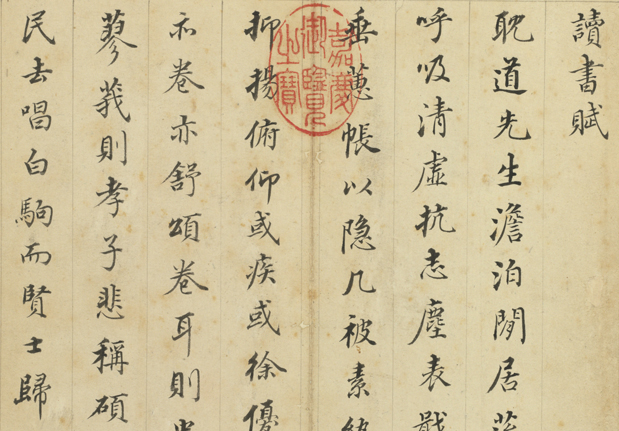 讀書賦
耽道先生澹泊閒居
呼吸清虛抗志塵表
垂蕙帳以隐几被素
抑揚俯仰或疾或徐優
亦卷亦舒頌卷耳則
蓼莪則孝子悲稱碩
民去唱白駒而賢士歸
嘉慶御覽之寶